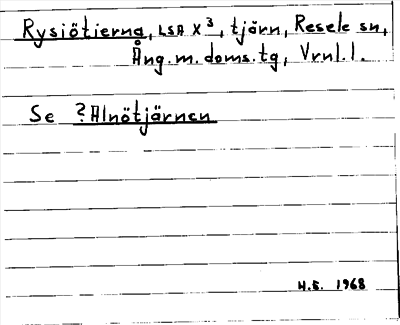 Rysiötierna, LSA X³, tjärn, Resele sn,
Ång.m.doms.tg, Vrnl.l.
Se ?Alnötjärnen
H.S. 1968